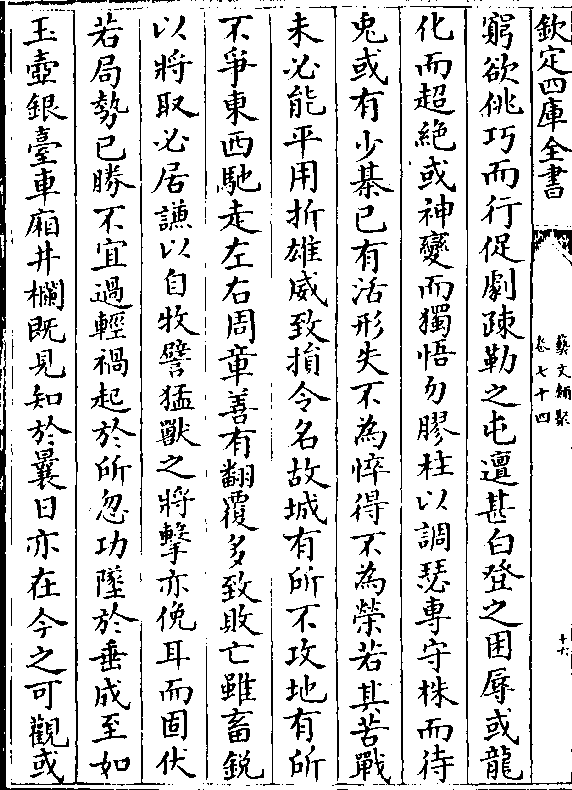 欽定四庫全書
藝文類聚
卷七十四
十六
窮欲佻巧而行促劇疎勒之屯邅甚白登之困辱或龍
化而超絶或神變而獨悟勿膠柱以調瑟專守株而待
兎或有少棊已有活形失不為悴得不為榮若其苦戰
未必能平用折雄威致損令名故城有所不攻地有所
不爭東西馳走左右周章善有翻覆多致敗亡雖畜鋭
以將取必居謙以自牧譬猛獸之將擊亦俛耳而固伏
若局勢已勝不宜過輕禍起於所忽功墜於垂成至如
玉壺銀臺車廂井欄既見知於曩日亦在今之可觀或